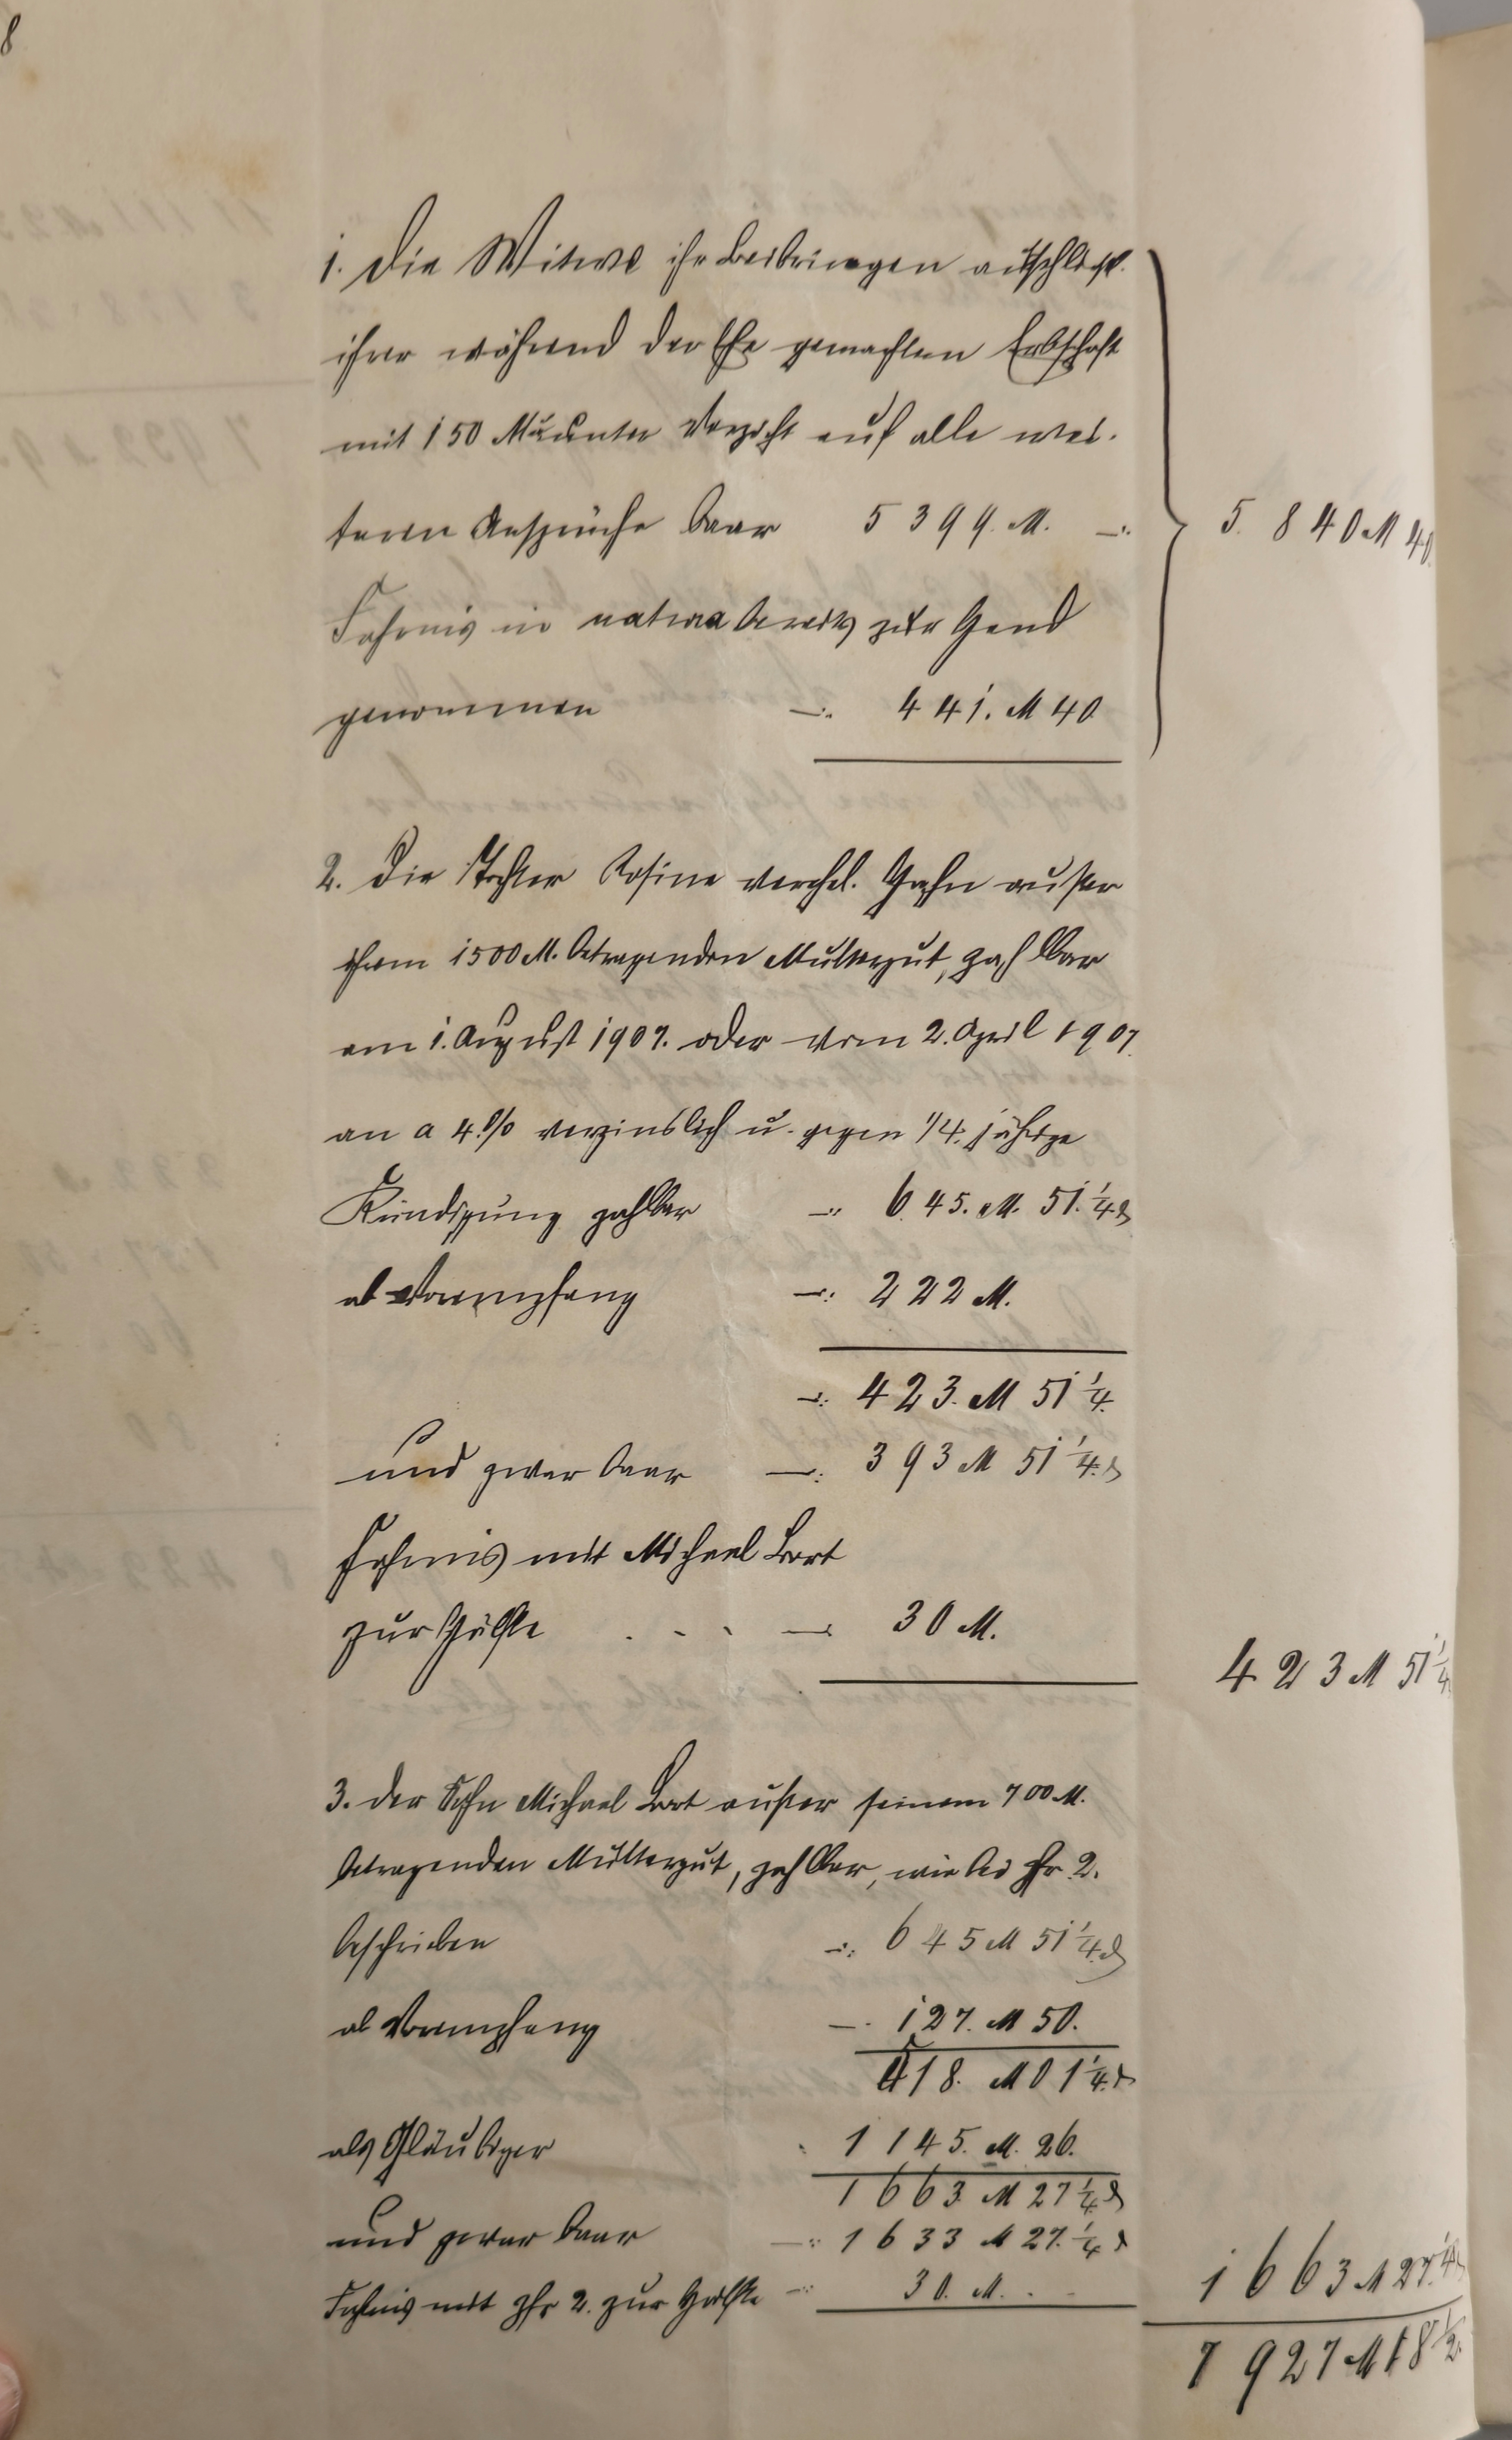 8
1. Die Witwe ihr Beibringen ausschließl.
ihrer während der Ehe gemachten Erbschaft
mit 150 M. unter Verzicht auf alle wei-
teren Ansprüche baar 5399. M. —:
5.840 M 40.
Fahrnis in natura bereits zur Hand
genommen —: 441. M 40
2. Die Tochter Rosine verehel. Hahn außer
ihrem 1500 M. betragenden Muttergut, zahlbar
am 1. August 1907. oder vom 2. April 1907.
an a 4.% verzinslich u. gegen 1/4. jährige
Kündigung zahlbar —: 645. M. 51.¼ ₰
ab Vorempfang —: 222 M.
—: 423. M 51 ¼.
und zwar baar —: 393 M 51 ¼. ₰
Fahrnis mit Michael
zur Hälfte . . . —: 30 M.
423 M 51 ¼
3. der Sohn Michael außer seinem 700 M.
betragenden Muttergut, zahlbar, wie bei Zfr. 2.
beschrieben —: 645 M 51 ¼. ₰
ab Vorempfang —. 127. M 50.
518. M 01 ¼. ₰
als Gläubiger 1145. M. 26.
1663 M 27 ¼. ₰
und zwar baar —: 1633 M 27. ¼ ₰
Fahrnis mit Zfr 2. zur Hälfte —: 30. M. . -
1663 M 27. ¼
7927 M 18 ½.